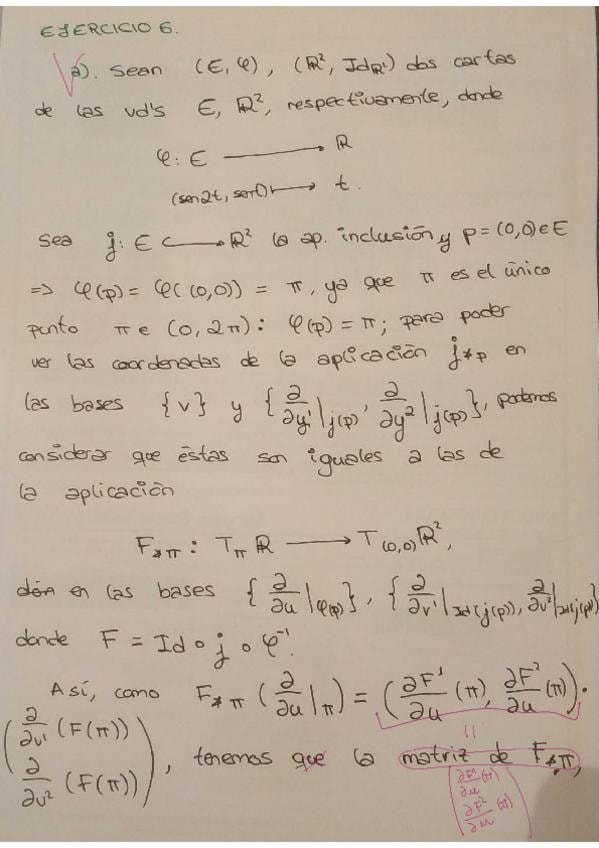 EJERCICIO 6.
a). Sean (E, φ), (ℝ², Idℝ²) dos cartas
de las vd's E, ℝ², respectivamente, donde
φ: E ⟶ ℝ
(sen2t, sent) ⟼ t.
Sea j: E ↪ ℝ² la ap. inclusión y p = (0,0) ∈ E
=> φ(p) = φ((0,0)) = π, ya que π es el único
punto π ∈ (0, 2π) : φ(p) = π; para poder
ver las coordenadas de la aplicación j*p en
las bases {v} y {∂/∂y¹|j(p), ∂/∂y²|j(p)}, podemos
considerar que éstas son iguales a las de
la aplicación
F*π : Tπ ℝ ⟶ T(0,0)ℝ²,
en las bases {∂/∂u|φ(p)}, {∂/∂v¹|Id(j(p)), ∂/∂v²|Id(j(p))}
donde F = Id ∘ j ∘ φ⁻¹.
Así, como F*π (∂/∂u|π) = (∂F¹/∂u (π), ∂F²/∂u (π)) ·
(∂/∂v¹ (F(π))
∂/∂v² (F(π))), tenemos que la matriz de F*π,
=
(∂F¹/∂u (π)
∂F²/∂u (π))